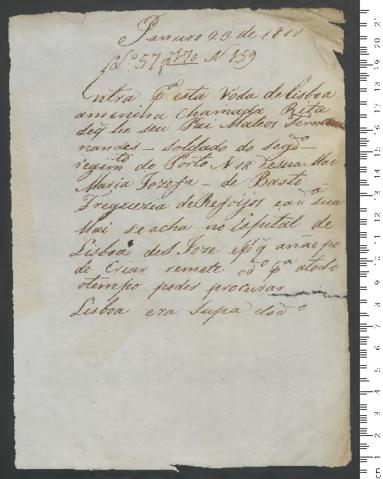 Janeiro 23 de 1811
Lº 57 N 159
Entra pª esta Roda de Lisboa
a menina Chamada Rita
deq he seu Pai Mateos Fernn
nandes – Soldado do segdº
regimtº do Porto N 18 e sua Mai
Maria Jozefa – de Basto
Freguezia de Refoyos e a sua
Mai se acha no Espital de
Lisboa de S Joze e a não po
de Crear remete pª atodo
otempo poder procurar
Lisboa era Supa